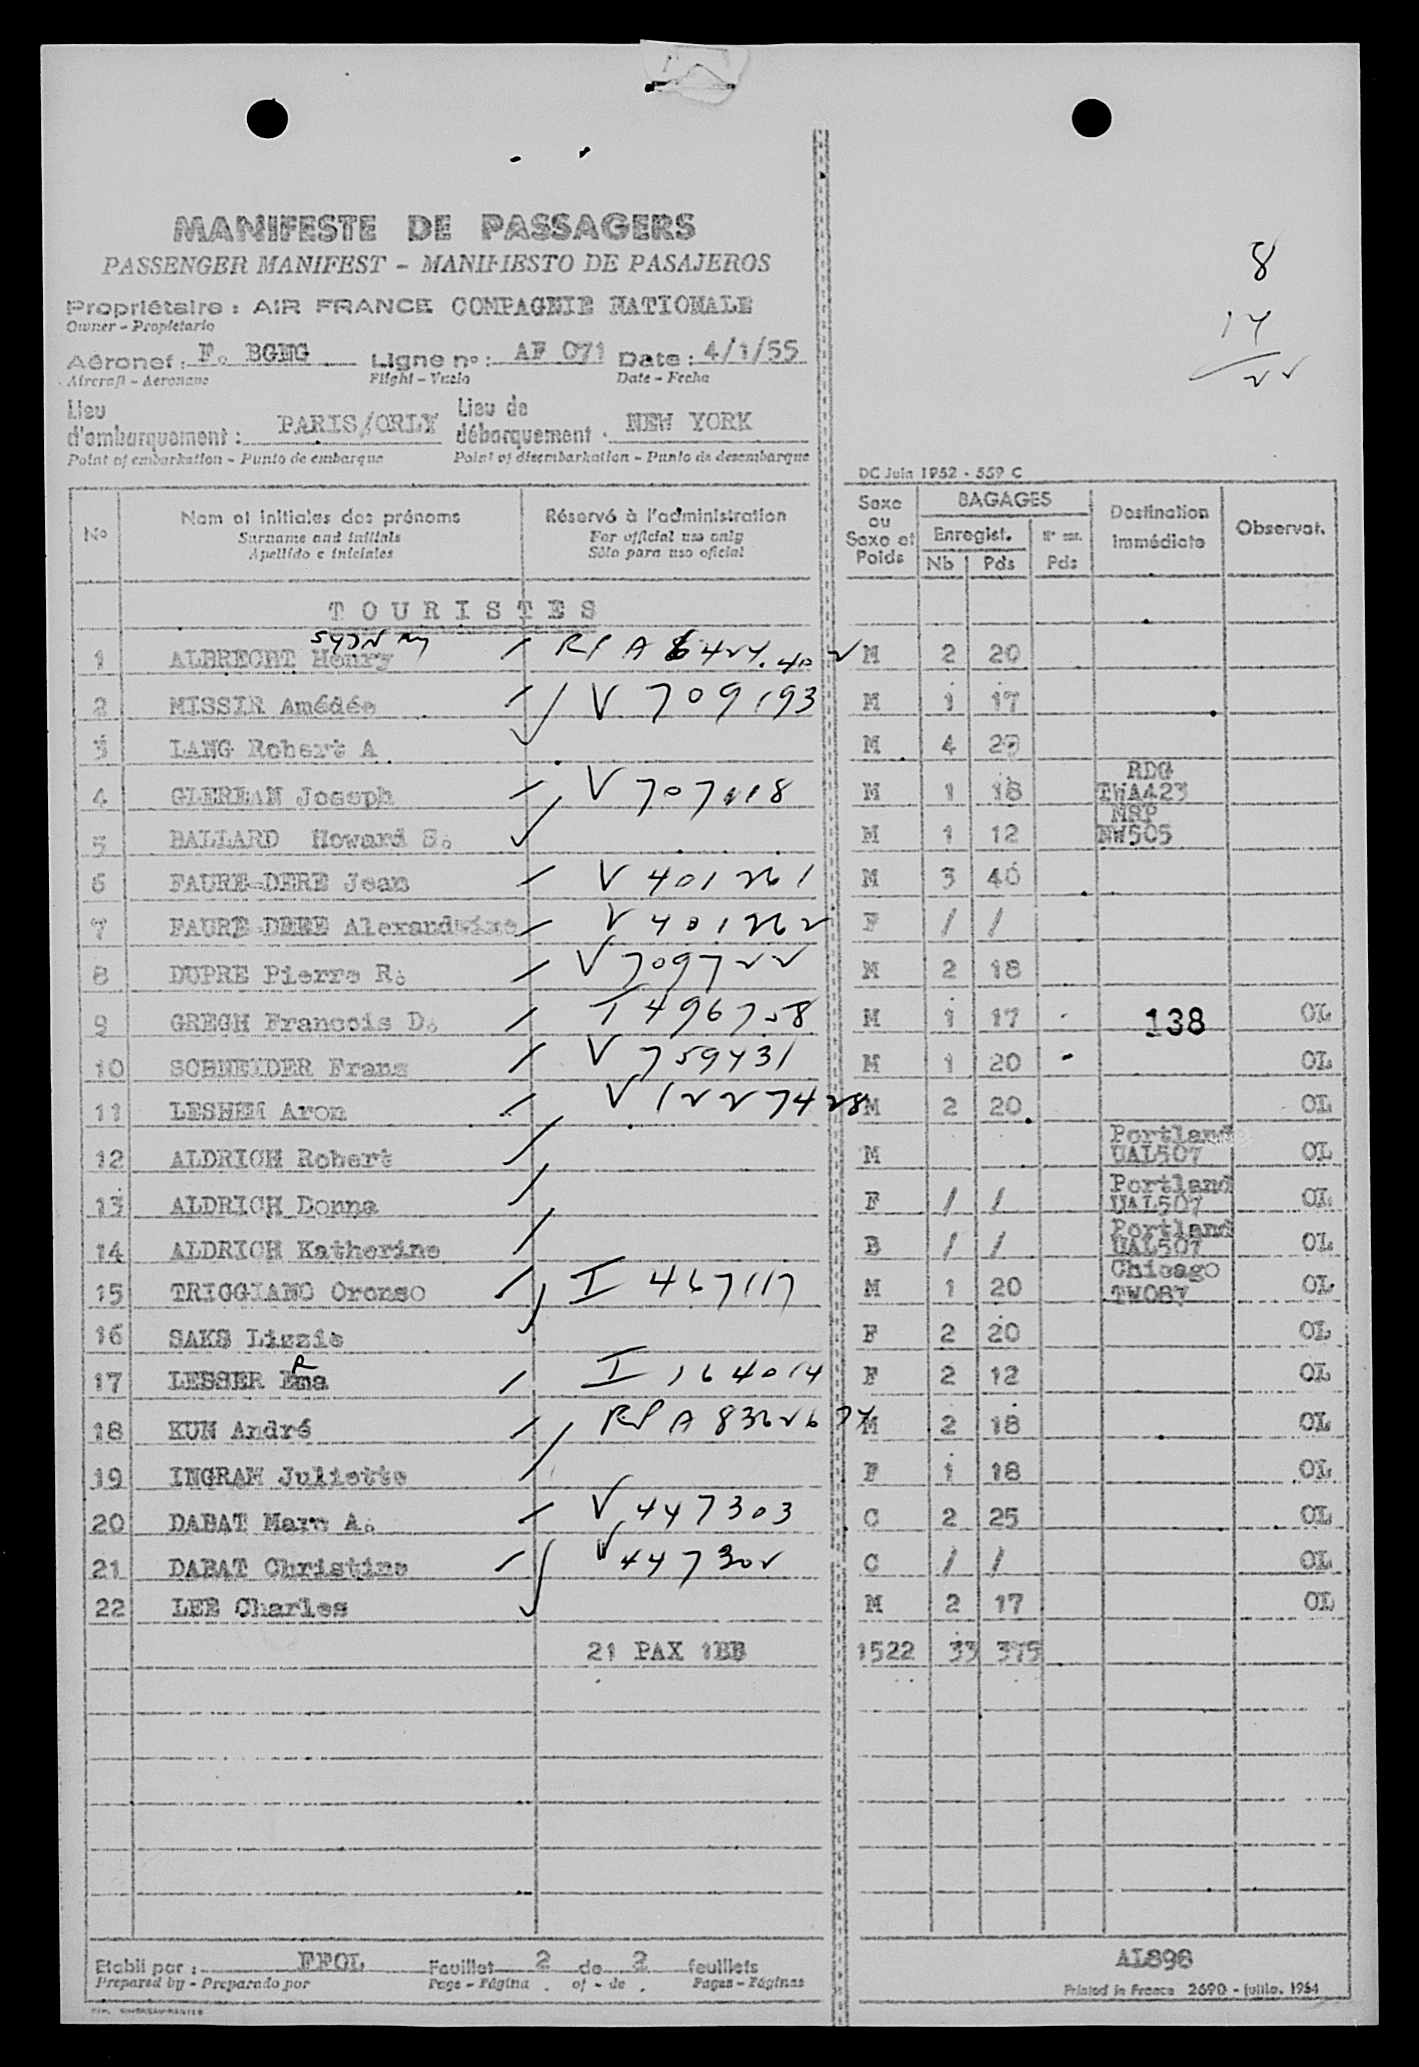 MANIFESTE DE PASSAGERS
PASSENGER MANIFEST - MANIFIESTO DE PASAJEROS
Propriétaire : AIR FRANCE COMPAGNIE NATIONALE
Owner - Propietario
Aéronef : F. BGNG Ligne n° : AF 071 Date : 4/1/55
Aircraft - Aeronave Flight - Vuelo Date - Fecha
Lieu d'embarquement : PARIS/ORLY Lieu de débarquement : NEW YORK
Point of embarkation - Punto de embarque Point of disembarkation - Punto de desembarque
8
14
22
DC Juin 1952 - 559 C
No Nom et initiales des prénoms Réservé à l'administration Sexe ou Sexe et Poids BAGAGES Destination immédiate Observat.
Surname and initials For official use only Enregist.
Apellido e iniciales Sólo para uso oficial Nb Pds Pds
TOURISTES
SYDNEY
1 ALBRECHT Henry RP A 6424.40 2 M 2 20
2 MISSIR Amédée V 709193 M 1 17
3 LANG Robert A M 4 29
4 GLEREAN Joseph V 707118 M 1 18 RDG TWA423
5 BALLARD Howard S. M 1 12 MSP NW505
6 FAURE-DERE Jean V 401261 M 3 40
7 FAURE-DERE Alexandrine V 401262 F / /
8 DUPRE Pierre R. V 709722 M 2 18
9 GREGH Francois D. I 496758 M 1 17 138 OL
10 SCHNEIDER Franz V 759431 M 1 20 OL
11 LESHEM Aron V 1227428 M 2 20 OL
12 ALDRICH Robert M Portland UAL507 OL
13 ALDRICH Donna F / / Portland UAL507 OL
14 ALDRICH Katherine B / / Portland UAL507 OL
15 TRIGGIANO Oronso I 467117 M 1 20 Chicago TW087 OL
16 SAKS Lizzie F 2 20 OL
R
17 LESSER Ema I 164014 F 2 12 OL
18 KUN André RP A 8362674 M 2 18 OL
19 INGRAM Juliette F 1 18 OL
20 DABAT Marc A. V 447303 C 2 25 OL
21 DABAT Christine V 447302 C / / OL
22 LEE Charles M 2 17 OL
21 PAX 1BB 1522 33 375
Etabli par : FFOL Feuillet 2 de 2 feuillets AL898
Prepared by - Preparado por Page - Página of - de Pages - Páginas Printed in France 2690 - juille. 1954